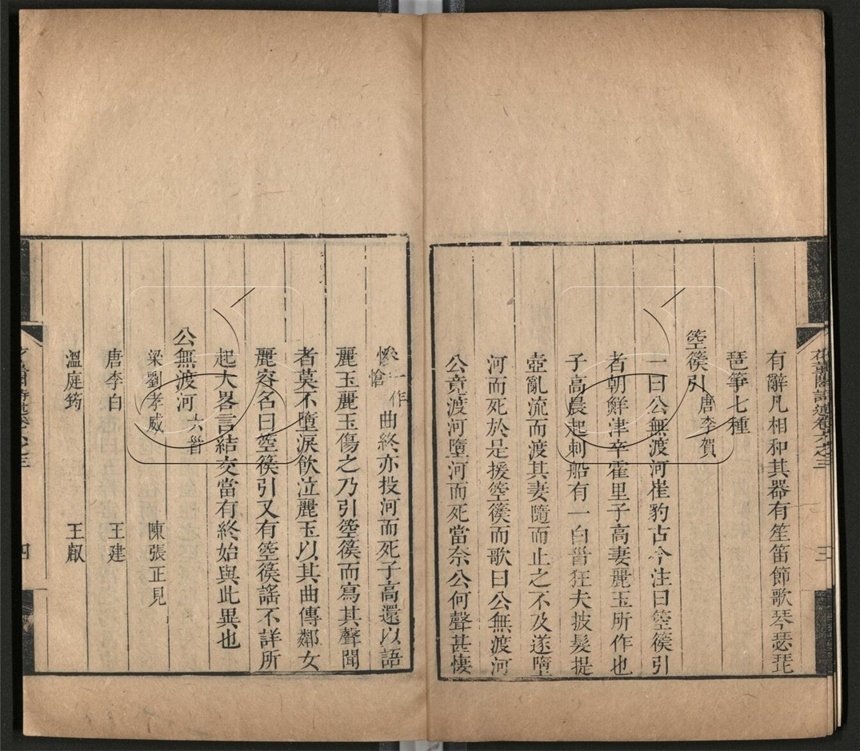 有辭凡相和其器有笙笛節歌琴瑟琵
琶箏七種
箜篌引唐李賀
一曰公無渡河崔豹古今注曰箜篌引
者朝鮮津卒霍里子高妻麗玉所作也
子高晨起刺船有一白首狂夫披髮提
壺亂流而渡其妻隨而止之不及遂墮
河而死於是援箜篌而歌曰公無渡河
公竟渡河墮河而死當奈公何聲甚悽
慘一作愴曲終亦投河而死子高還以語
麗玉麗玉傷之乃引箜篌而寫其聲聞
者莫不墮淚飲泣麗玉以其曲傳鄰女
麗容名曰箜篌引又有箜篌謠不詳所
起大畧言結交當有終始與此異也
公無渡河六首
梁劉孝威 陳張正見
唐李白 王建
溫庭筠 王叡
四